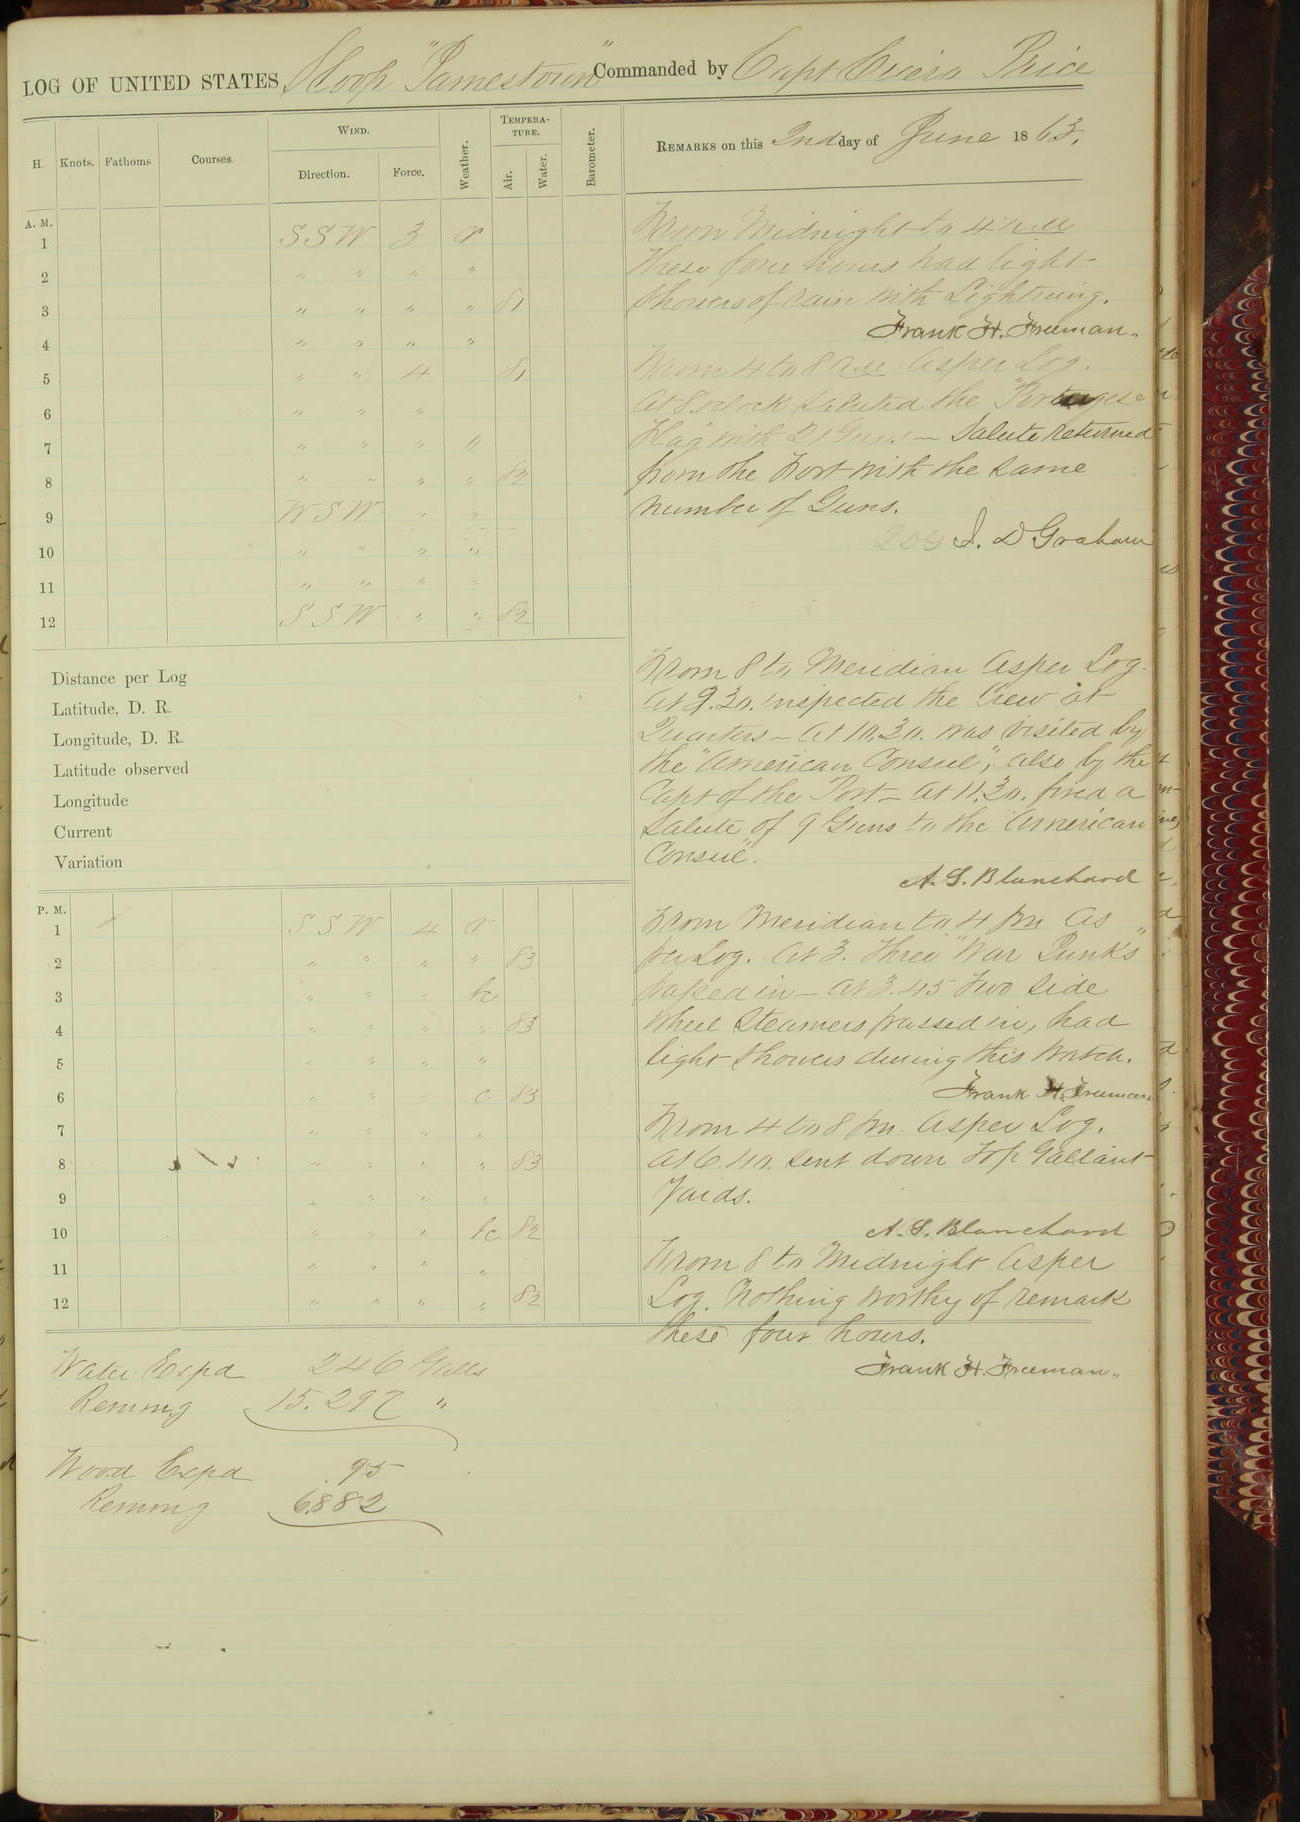 LOG OF UNITED STATES Sloop "Jamestown" Commanded by Capt Cicero Price
H. Knots. Fathoms Courses. WIND. Direction. Force. Weather. TEMPERATURE. Air. Water. Barometer. REMARKS on this 2nd day of June 1863.
A. M.
1 SSW 3 r
2 " " " "
3 " " " " 81
4 " " " "
5 " " 4 81
6 " " "
7 " " " "
8 " " " " 82
9 WSW " "
10 " " " "
11 " " " "
12 SSW " " 82
From Midnight to 4 A.M.
These four hours had light
showers of rain with Lightning.
Frank H. Freeman.
From 4 to 8 a.m. As per Log.
At 8. oclock saluted the "Portugese
Flag" with 21 Guns — Salute returned
from the Fort with the same
number of Guns.
J. D Graham
Distance per Log
Latitude, D. R.
Longitude, D. R.
Latitude observed
Longitude
Current
Variation
From 8 to Meridian As per Log.
At 9.30. inspected the Crew at
Quarters — At 10.30. was visited by
the "American Consul", also by the
Capt of the Port — At 11.30. fired a
Salute of 9 Guns to the "American
Consul".
A. S. Blanchard
P. M.
1 SSW 4 r
2 " " " " 83
3 " " " bc
4 " " " " 83
5 " " " "
6 " " " c 83
7 " " " "
8 " " " " 83
9 " " " "
10 " " " bc 82
11 " " " "
12 " " " " 82
From Meridian to 4 pm As
per Log. At 3. Three "War Junks"
passed in — At 3.45 Two side
wheel Steamers passed in, had
light showers during this watch.
Frank H. Freeman
From 4 to 8 pm. As per Log.
At 6.40. sent down Top Gallant
Yards.
A. S. Blanchard
From 8 to Midnight As per
Log. Nothing worthy of remark
these four hours.
Frank H. Freeman.
Water Expd 246 Galls
Remmg 15.297 "
Wood Expd 95
Remmg 6882